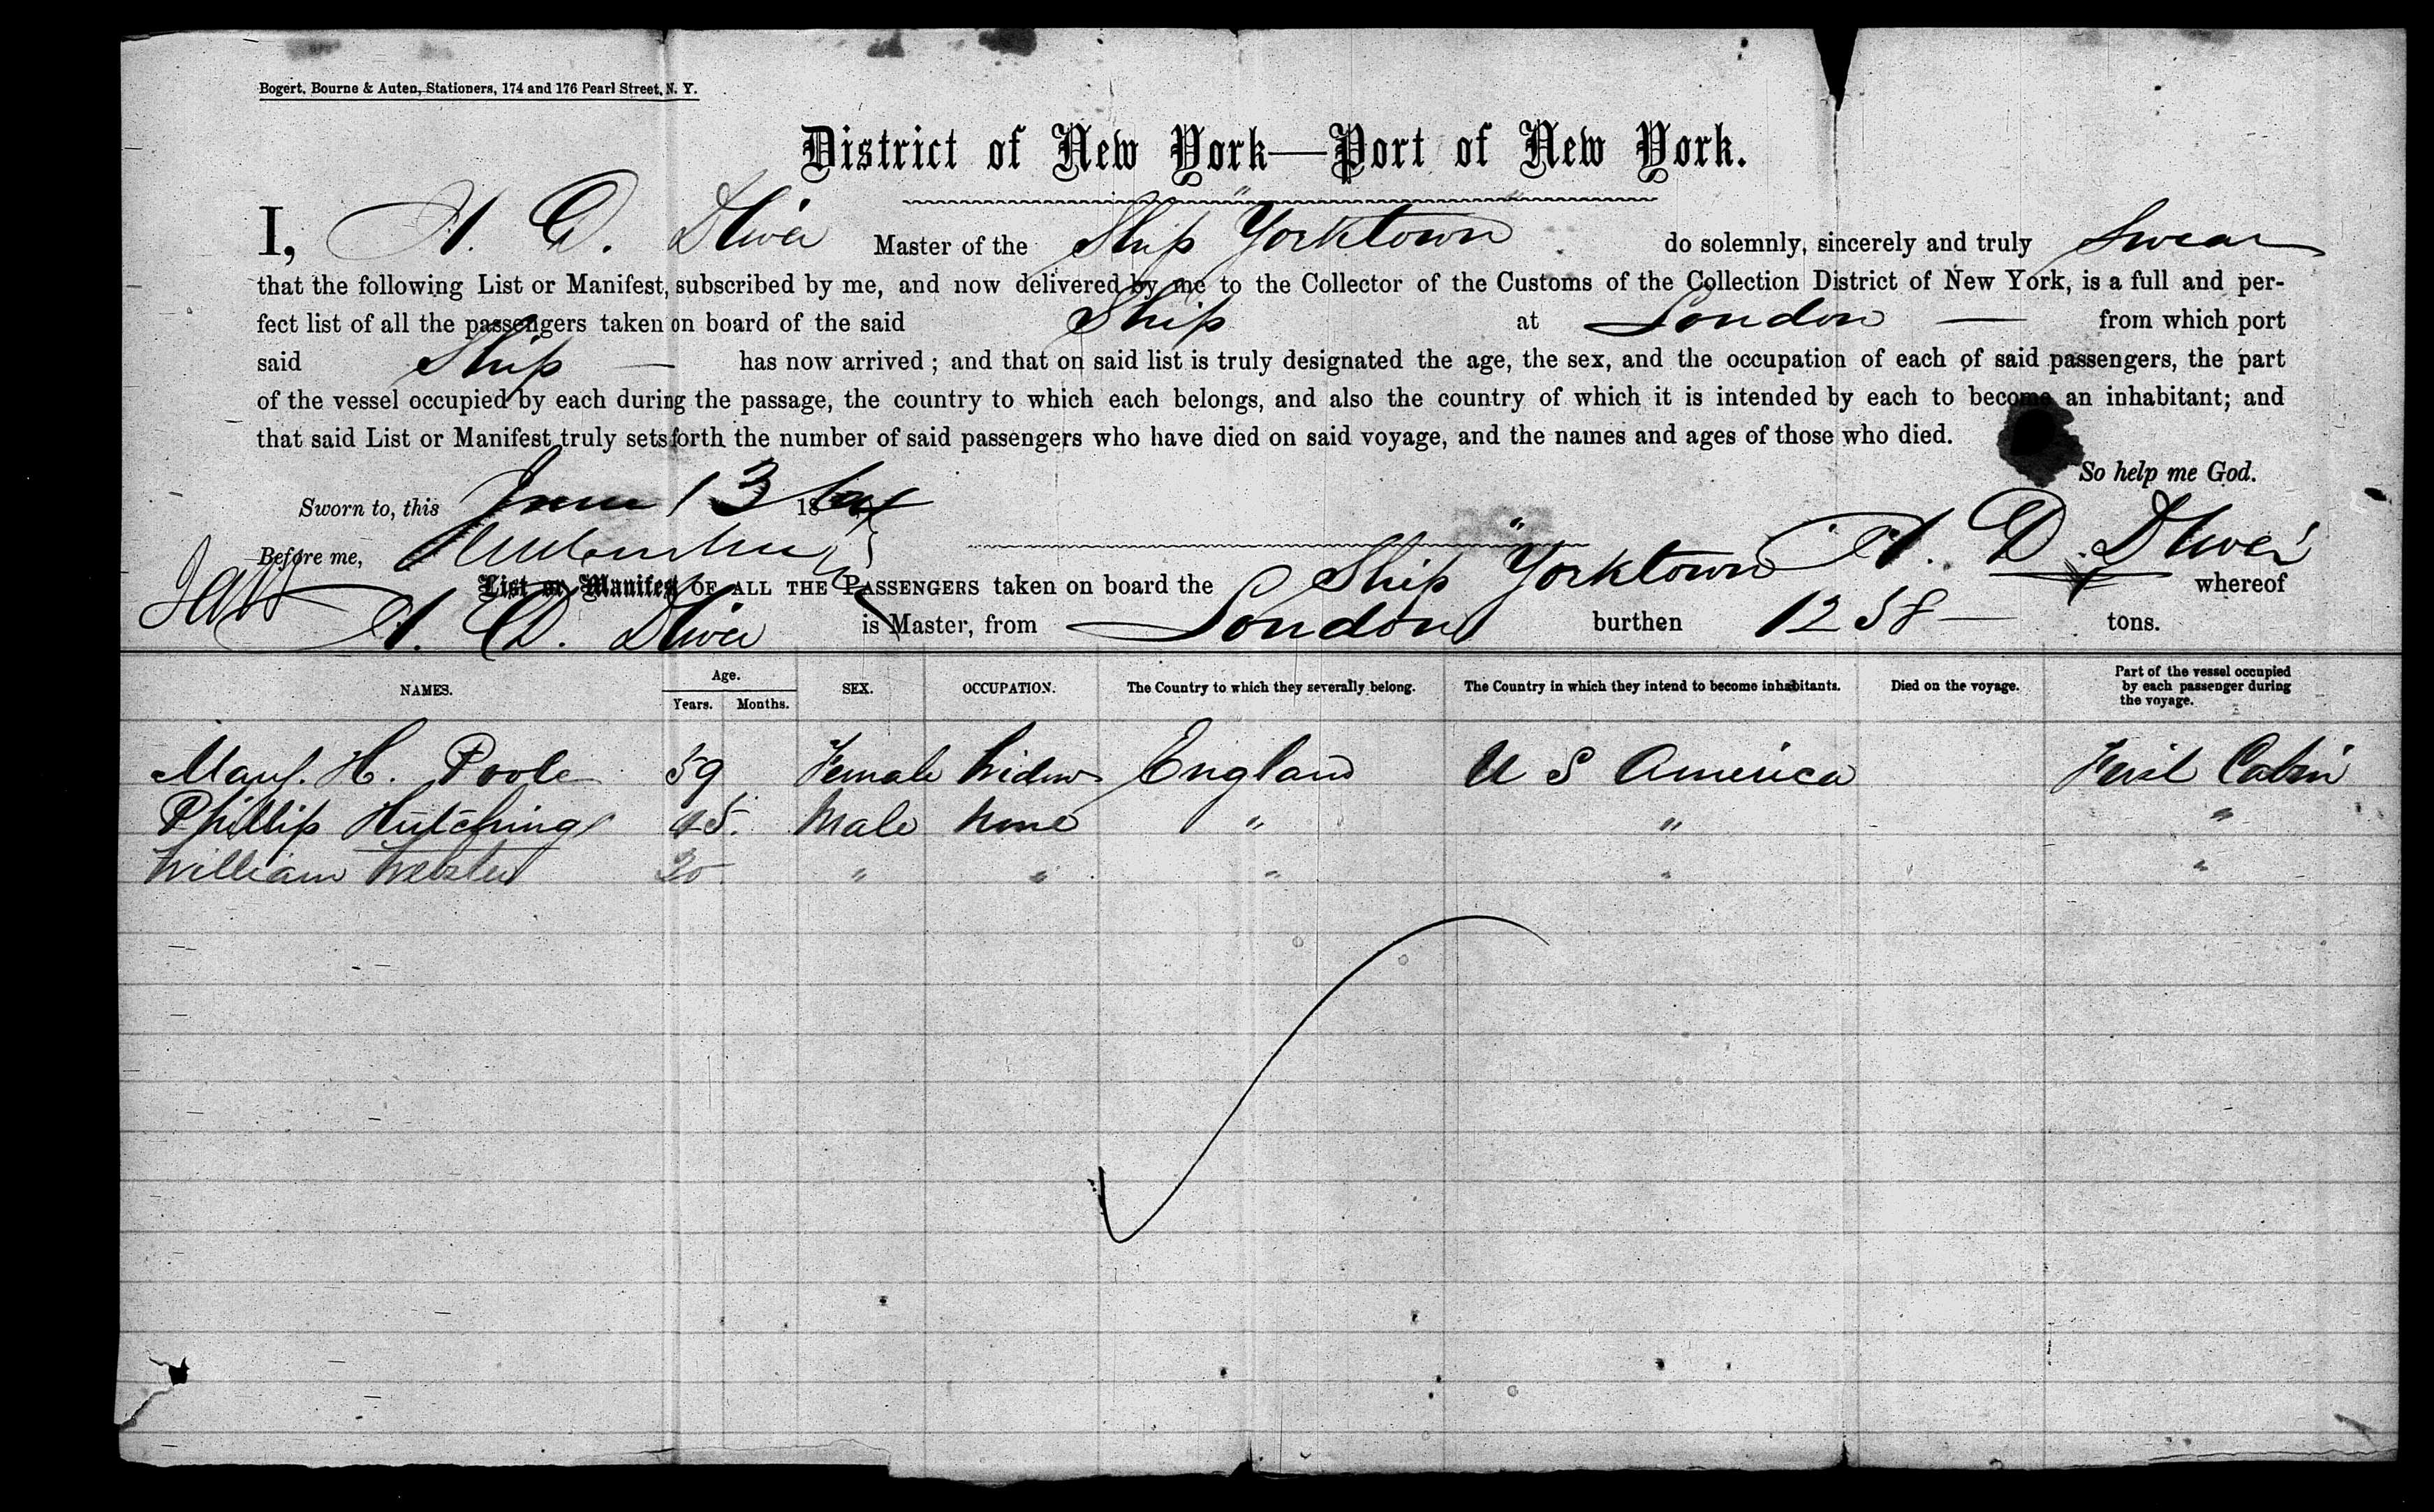 Bogert, Bourne & Auten, Stationers, 174 and 176 Pearl Street, N. Y.
District of New York—Port of New York.
I, Master of the Ship "Yorktown" do solemnly, sincerely and truly Swear
that the following List or Manifest, subscribed by me, and now delivered by me to the Collector of the Customs of the Collection District of New York, is a full and per-
fect list of all the passengers taken on board of the said Ship at London — from which port
said Ship — has now arrived ; and that on said list is truly designated the age, the sex, and the occupation of each of said passengers, the part
of the vessel occupied by each during the passage, the country to which each belongs, and also the country of which it is intended by each to become an inhabitant; and
that said List or Manifest truly sets forth the number of said passengers who have died on said voyage, and the names and ages of those who died.
So help me God.
Sworn to, this June 13 18
Before me,
List or Manifest OF ALL THE PASSENGERS taken on board the Ship "Yorktown whereof
is Master, from London burthen 1258 — tons.
NAMES. Age. Years. Months. SEX. OCCUPATION. The Country to which they severally belong. The Country in which they intend to become inhabitants. Died on the voyage. Part of the vessel occupied by each passenger during the voyage.
Mary. H. Poole 59 Female Widow England U S America First Cabin
Phillip Hutchings 45. Male None " " "
William Webster 30 " " " " "